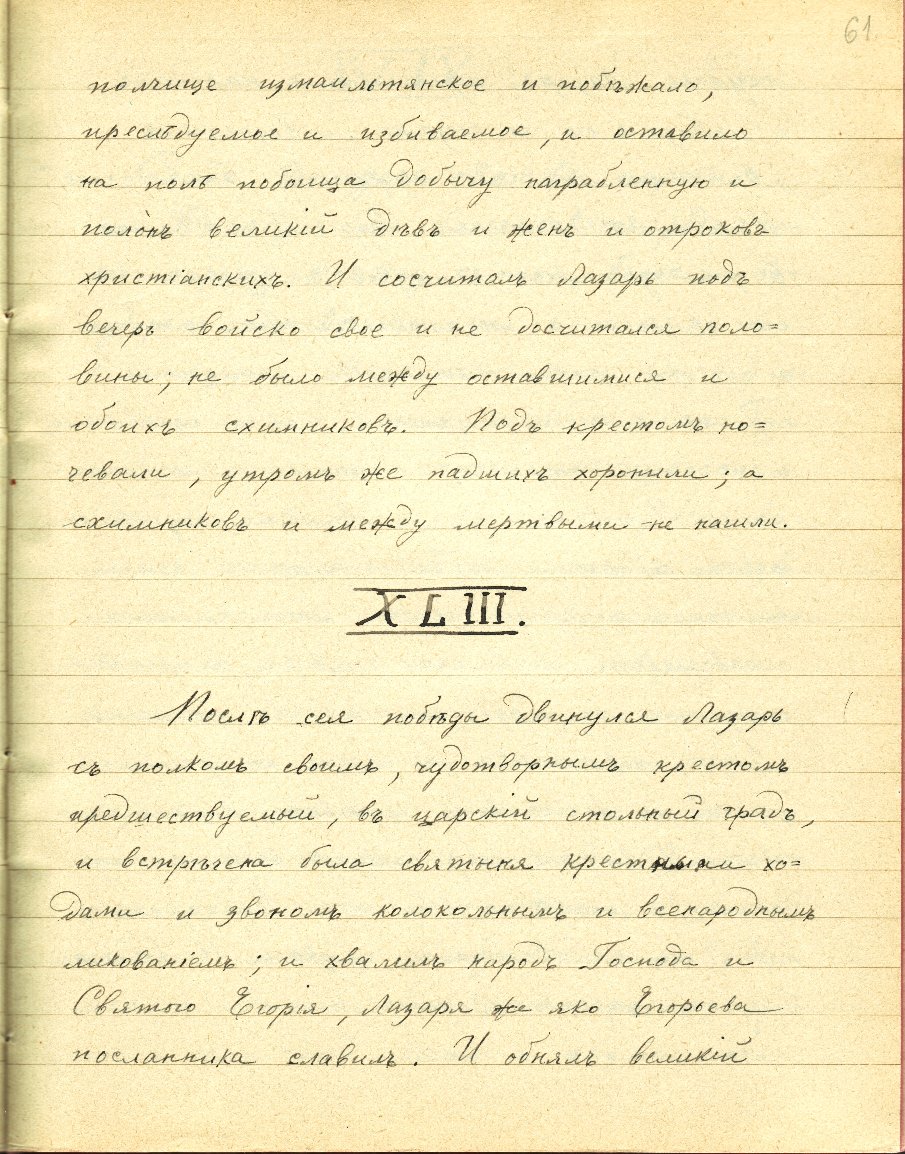 61.
полчище измаильтянское и побѣжало,
преслѣдуемое и избиваемое, и оставило
на полѣ побоища добычу награбленную и
полонъ великій дѣвъ и женъ и отроковъ
христіанскихъ. И сосчиталъ Лазарь подъ
вечеръ войско свое и не досчитался поло=
вины; не было между оставшимися и
обоихъ схимниковъ. Подъ крестомъ но=
чевали, утромъ же падшихъ хоронили; а
схимниковъ и между мертвыми не нашли.
XLIII.
Послѣ сея побѣды двинулся Лазарь
съ полкомъ своимъ, чудотворнымъ крестомъ
предшествуемый, въ царскій стольный градъ,
и встрѣчена была святыня крестными хо=
дами и звономъ колокольнымъ и всенароднымъ
ликованіемъ; и хвалилъ народъ Господа и
Святого Егорія, Лазаря же яко Егорьева
посланника славилъ. И обнялъ великій